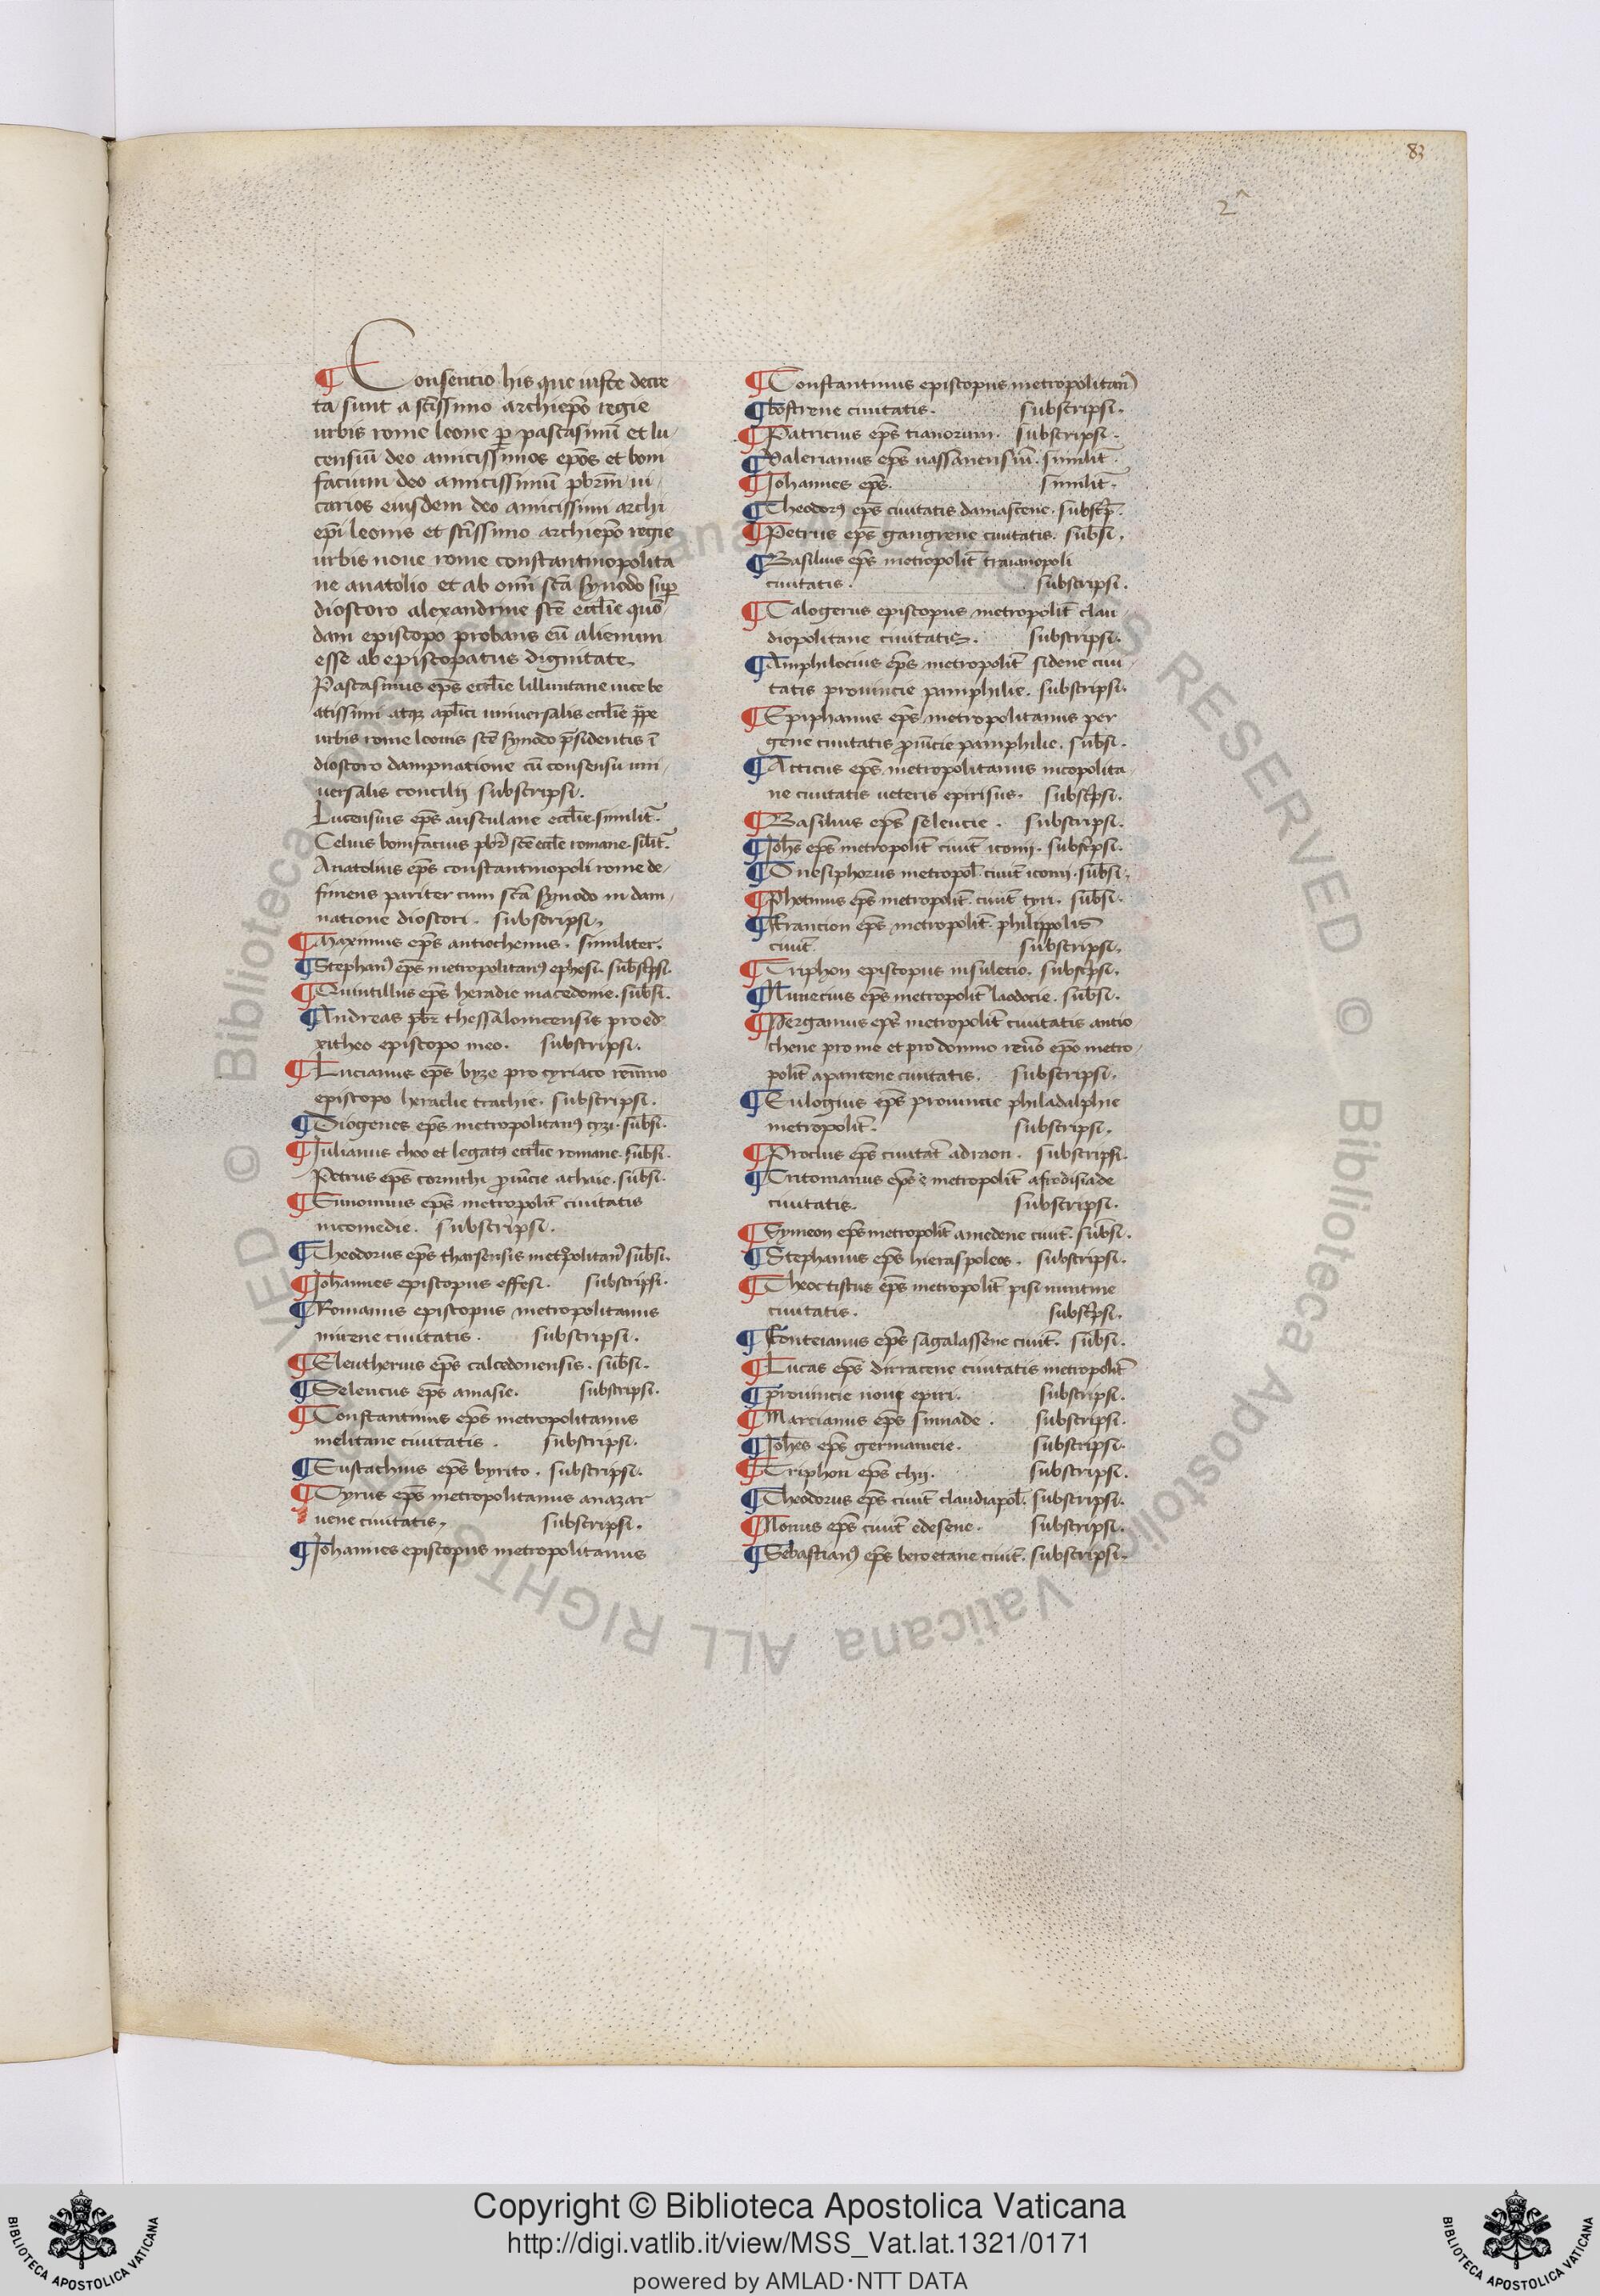 83
2ᵃ
¶ Consentio his que iuste decre
ta sunt a scīssimo archiepō regie
urbis rome leone ꝑ pascasinū et lu
censiū deo amicissimos epōs et boni
facium deo amicissimū pbrm̄ ui
carios eiusdem deo amicissimi archi
epī leonis et scīssimo archiepō regie
urbis noue rome constantinopolita
ne anatolio et ab omī scā synodo suꝑ
dioscoro alexandrine scē ecclīe quō
dam episcopo probans eū alienum
esse ab episcopatus dignitate
Pascasinus ep̄s ecclīe lilluntane uice be
atissimi atqꝫ aplīci uniuersalis ecclīe pp̄e
urbis rome leonis scē synodo p̄sidentis ī
dioscoro dampnatione cū consensu uni
uersalis concilij subscripsi.
Lucensius ep̄s ausculane ecclīe similit̄.
Celius bonifacius pbr̄ scē eccle romane. silit̄.
Anatolius ep̄s constantinopoli rome de
finiens pariter cum scā synodo in dam
natione dioscori. subscripsi.
¶ Maximus ep̄s antiochenus. similiter.
¶ Stephanꝰ ep̄s metropolitanꝰ ephesi. subscp̄si.
¶ Quintillus ep̄s heradie macedonie. subsī.
¶ Andreas pbr̄ thessalonicensis pro ed
xitheo episcopo meo. subscripsi.
¶ Lucianus ep̄s byze pro cyriaco reūmo
episcopo heradie trachie. subscripsi.
¶ Diogenes ep̄s metropolitanꝰ cyzi. subsī.
¶ Iulianus choo et legatꝰ ecclīe romane. subsī.
Petrus ep̄s corinthi ꝓuīcie achaie. subsī.
¶ Eunomius ep̄s metropolit̄ ciuitatis
nicomedie. subscripsi.
¶ Theodorus ep̄s tharsensis met̄politanꝰ subsī.
¶ Iohannes episcopus effesi. subscripsi.
¶ Romanus episcopus metropolitanus
mirene ciuitatis. subscripsi.
¶ Eleutherius ep̄s calcedonensis. subsī.
¶ Seleucus ep̄s amasie. subscripsi.
¶ Constantinus ep̄s metropolitanus
melitane ciuitatis. subscripsi.
¶ Eustachius ep̄s byrito. subscripsi.
¶ Cyrus ep̄s metropolitanus anazar
uene ciuitatis, subscripsi.
¶ Iohannes episcopus metropolitanus
¶ Constantinus episcopus metropolitanꝰ
¶ bostrene ciuitatis. subscripsi.
¶ Patricius ep̄s tianorum. subscripsi.
¶ Valerianus ep̄s uassanensiū. similit̄.
¶ Iohannes ep̄s. similit̄.
¶ Theodorꝰ ep̄s ciuitatis damascene. subscp̄.
¶ Petrus ep̄s gangrene ciuitatis. subsī.
¶ Basilius ep̄s metropolit̄ traianopoli
ciuitatis. subscripsi.
¶ Calogerus episcopus metropolit̄ clau
diopolitane ciuitatis. subscripsi.
¶ Amphilocius ep̄s metropolit̄ sidene ciui
tatis prouincie pamphilie. subscripsi.
¶ Epiphanus ep̄s metropolitanus per
gene ciuitatis ꝓuīcie pamphilie. subsi.
¶ Atticus ep̄s metropolitanus nicopolita
ne ciuitatis ueteris epirisus. subscp̄si.
¶ Basilius ep̄s seleucie. subscripsi.
¶ Iohs̄ ep̄s metropolit̄ ciuit̄ iconij. subscp̄si.
¶ Onesiphorus metropol̄. ciuit̄ iconij. subsī.
¶ Photinus ep̄s metropolit̄. ciuit̄ tyri. subsī.
¶ Francion ep̄s metropolit̄. philippolis
ciuit̄ subscripsi.
¶ Triphon episcopus insuletio. subscp̄si.
¶ Nunecius ep̄s metropolit̄ laodocie. subsī.
¶ Pergamus ep̄s metropolit̄ ciuitatis antio
chene pro me et pro domno reūo epō metro
polit̄ apantene ciuitatis. subscripsi.
¶ Eulogius ep̄s prouincie philadalphie
metropolit̄. subscripsi.
¶ Proclus ep̄s ciuitat̄ adraon. subscripsi.
¶ Critonianus ep̄s metropolit̄ afrodisiade
ciuitatis. subscripsi.
¶ Symeon ep̄s metropolit̄ amedene ciuit̄. subsī.
¶ Stephanus ep̄s hieraspoleos. subscripsi.
¶ Theoctistus ep̄s metropolit̄ pisinuntine
ciuitatis. subscp̄si.
¶ Fonteianus ep̄s sagalassene ciuit̄. subsī.
¶ Lucas ep̄s dirracene ciuitatis metropolit̄
¶ prouincie noue epiri. subscripsi.
¶ Marcianus ep̄s sinnade. subscripsi.
¶ Iohēs ep̄s germanicie. subscripsi.
¶ Triphon ep̄s chij. subscripsi.
¶ Theodorus ep̄s ciuit̄ claudiapol̄. subscripsi.
¶ Nonus ep̄s ciuit̄ edesene. subscripsi.
¶ Sebastianꝰ ep̄s beroetane ciuit̄. subscripsi.
© Biblioteca Apostolica Vaticana ALL RIGHTS RESERVED © Biblioteca Apostolica Vaticana ALL RIGHTS RESERVED
Copyright © Biblioteca Apostolica Vaticana
http://digi.vatlib.it/view/MSS_Vat.lat.1321/0171
powered by AMLAD·NTT DATA
BIBLIOTECA APOSTOLICA VATICANA
BIBLIOTECA APOSTOLICA VATICANA